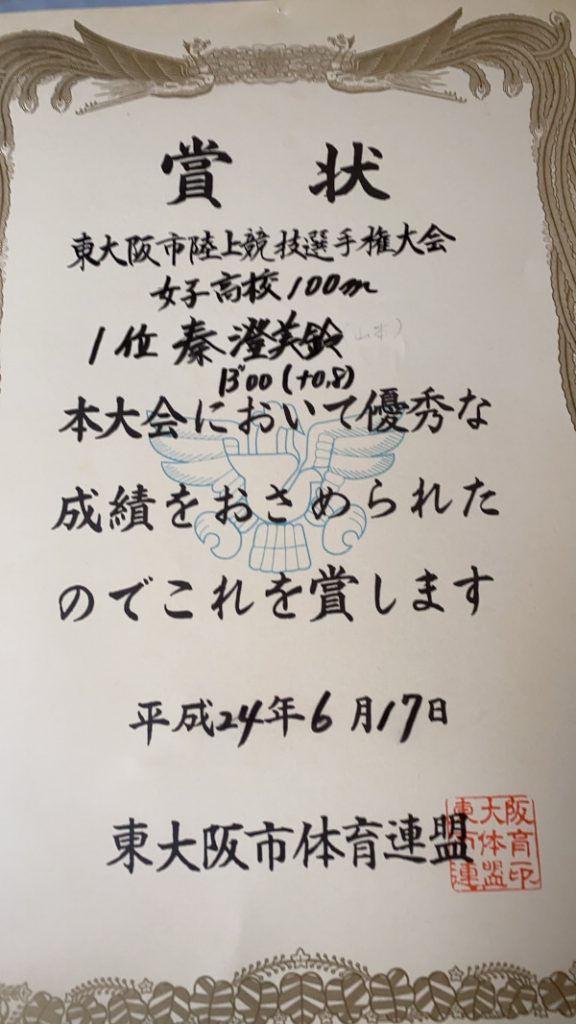 賞状
東大阪市陸上競技選手権大会
女子高校100m
1位 秦 澄美鈴
13"00 (+0.8)
本大会において優秀な
成績をおさめられた
のでこれを賞します
平成24年6月17日
東大阪市体育連盟
東大阪
市体育
連盟印